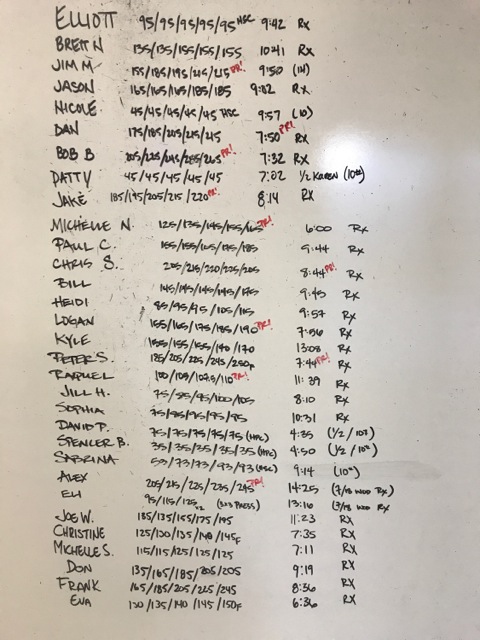 ELLIOTT 95/95/95/95/95 HSC 9:42 RX
BRETT N 135/135/155/155/155 10:41 RX
JIM M 155/185/195/215/215 PR! 9:50 (14)
JASON 165/165/165/185/185 9:02 RX
NICOLE 45/45/45/45/45 HSC 9:57 (10)
DAN 175/185/205/215/215 7:50 PR! RX
BOB B 205/225/245/255/265 PR! 7:32 RX
PATTY 45/45/45/45/45 7:02 1/2 KAREN (10#)
JAKE 185/195/205/215/220 PR! 8:14 RX
MICHELLE N. 125/135/145/155/165 PR! 6:00 RX
PAUL C. 155/155/165/175/185 9:44 RX
CHRIS S. 205/215/220/225/205 8:44 PR! RX
BILL 145/145/145/145/175 9:45 RX
HEIDI 85/95/95/105/115 9:57 RX
LOGAN 155/165/175/185/190 PR! 7:56 RX
KYLE 155/155/155/170/170 13:08 RX
PETER S. 185/205/225/245/250F 7:44 PR! RX
RAQUEL 100/105/107.5/110 PR! 11:39 RX
JILL H. 75/85/95/100/105 8:10 RX
SOPHIA 75/85/95/95/85 10:31 RX
DAVID P. 75/75/75/75/75 (HPC) 4:35 (1/2 / 10#)
SPENCER B. 35/35/35/35/35 (HPC) 4:50 (1/2 / 10#)
SABRINA 53/73/73/93/93 (HSC) 9:14 (10#)
ALEX 205/215/225/235/245 PR! 14:25 (7/18 WOD RX)
ELI 95/115/125 x2 (3x3 PRESS) 13:16 (7/18 WOD RX)
JOE W. 135/135/155/175/195 11:23 RX
CHRISTINE 125/130/135/140/145F 7:35 RX
MICHELLE S. 115/115/125/125/125 7:11 RX
DON 135/165/185/205/205 9:19 RX
FRANK 165/185/205/225/245 8:36 RX
EVA 130/135/140/145/150F 6:36 RX